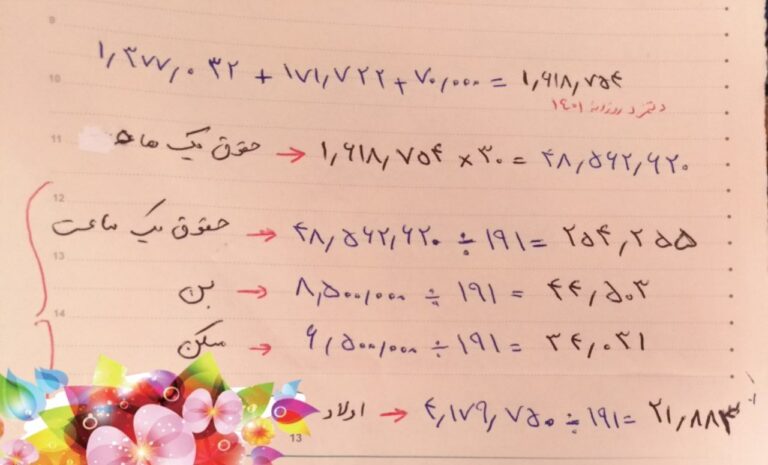 9
۱,۳۷۷,۰۳۲ + ۱۷۱,۷۲۲ + ۷۰,۰۰۰ = ۱,۶۱۸,۷۵۴
10
دستمزد روزانه ۱۴۰۱
11
حقوق یک ماه → ۱,۶۱۸,۷۵۴ × ۳۰ = ۴۸,۵۶۲,۶۲۰
12
حقوق یک ساعت → ۴۸,۵۶۲,۶۲۰ ÷ ۱۹۱ = ۲۵۴,۲۵۵
13
بن → ۸,۵۰۰,۰۰۰ ÷ ۱۹۱ = ۴۴,۵۰۳
14
مسکن → ۶,۵۰۰,۰۰۰ ÷ ۱۹۱ = ۳۴,۰۳۱
اولاد → ۴,۱۷۹,۷۵۰ ÷ ۱۹۱ = ۲۱,۸۸۳
13